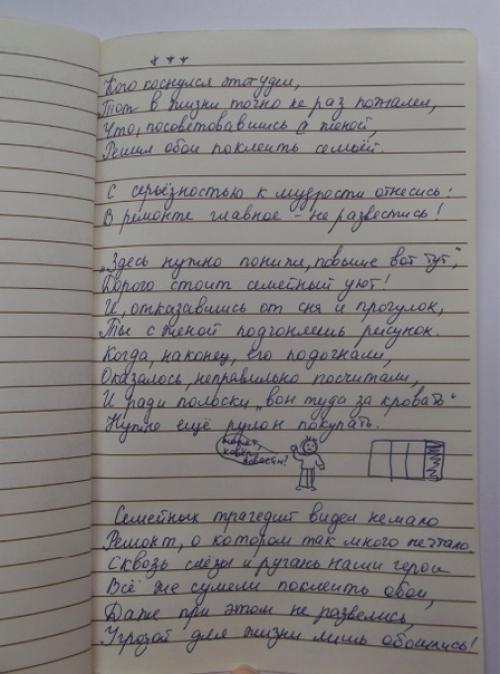 Кого коснулся этот удел,
Тот в жизни точно не раз пожалел,
Что, посоветовавшись с женой,
Решил обои поклеить семьёй.
С серьёзностью к мудрости отнесись:
В ремонте главное - не развестись!
„Здесь нужно пониже, повыше вот тут",
Дорого стоит семейный уют!
И, отказавшись от сна и прогулок,
Ты с женой подгоняешь рисунок.
Когда, наконец, его подогнали,
Оказалось, неправильно посчитали,
И ради полоски „вон туда за кровать"
Нужно ещё рулон покупать.
может,
ковёр
повесим!
Семейных трагедий видел немало
Ремонт, о котором так много мечтало.
Сквозь слёзы и ругань наши герои
Всё же сумели поклеить обои,
Даже при этом не развелись,
Угрозой для жизни лишь обошлись!